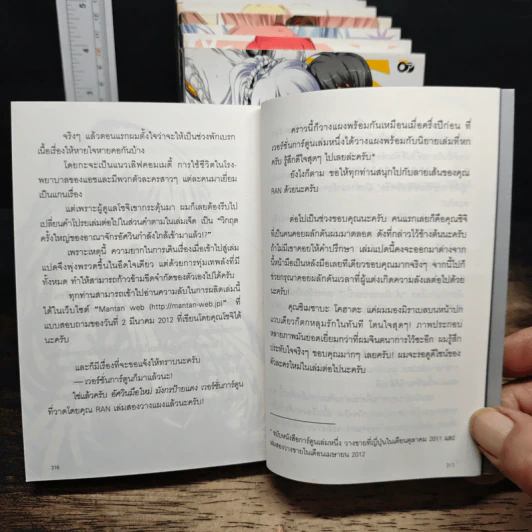 จริงๆ แล้วตอนแรกผมตั้งใจว่าจะให้เป็นช่วงพักเบรก
เนื้อเรื่องให้หายใจหายคอกันบ้าง
โดยกะจะเป็นแนวเลิฟคอมเมดี้ การใช้ชีวิตในโรง-
พยาบาลของแอชและมีพวกตัวละครสาวๆ แต่ละคนมาเยี่ยม
เป็นแกนเรื่อง
แต่เพราะผู้ดูแลโชจิเขากระตุ้นมา ผมก็เลยต้องรีบไป
เปลี่ยนคำโปรยเล่มต่อไปในส่วนคำตามในเล่มเจ็ด เป็น "วิกฤต
ครั้งใหญ่ของอาณาจักรอัศวินกำลังใกล้เข้ามาแล้ว!?"
เพราะเหตุนี้ ความยากในการเดินเรื่องเมื่อเข้าไปสู่เล่ม
แปดจึงพุ่งพรวดขึ้นในอึดใจเดียว แต่ด้วยการทุ่มเทพลังที่มี
ทั้งหมด ทำให้สามารถก้าวข้ามขีดจำกัดของตัวเองไปได้ครับ
ทุกท่านสามารถเข้าไปอ่านความลับในการผลิตเล่มนี้
ได้ในเว็บไซต์ "Mantan web (http://mantan-web.jp)" ที่
แบบสอบถามของวันที่ 2 มีนาคม 2012 ที่เขียนโดยคุณโชจิได้
นะครับ
และก็มีเรื่องที่จะขอแจ้งให้ทราบนะครับ
— เวอร์ชันการ์ตูนก็มาแล้วนะ!
ใช่แล้วครับ อัศวินมือใหม่ มังกรป้ายแดง เวอร์ชันการ์ตูน
ที่วาดโดยคุณ RAN เล่มสองวางแผงแล้วนะครับ!
316
คราวนี้ก็วางแผงพร้อมกันเหมือนเมื่อครึ่งปีก่อน ที่
เวอร์ชันการ์ตูนเล่มหนึ่งได้วางแผงพร้อมกับนิยายเล่มที่หก
ครับ รู้สึกดีใจสุดๆ ไปเลยล่ะครับ*
ยังไงก็ตาม ขอให้ทุกท่านสนุกไปกับลายเส้นของคุณ
RAN ด้วยนะครับ
ต่อไปเป็นช่วงขอบคุณนะครับ คนแรกเลยก็คือคุณโชจิ
ที่เป็นคนคอยผลักดันผมมาตลอด ดังที่กล่าวไว้ข้างต้นนะครับ
ถ้าไม่มีเขาคอยให้คำปรึกษา เล่มแปดนี้คงจะออกมาต่างจาก
นี้หน้ามือเป็นหลังมือเลยทีเดียวขอบคุณมากจริงๆ จากนี้ไปก็
ช่วยกรุณาคอยผลักดันเวลาที่ผู้แต่งเกิดความลังเลต่อไปด้วย
นะครับ!
คุณชิเมซาบะ โคฮาดะ แค่ผมมองมิราเบลบนหน้าปก
แวบเดียวก็ตกหลุมรักในทันที โดนใจสุดๆ! ภาพประกอบ
หลายภาพมันยอดเยี่ยมกว่าที่ผมจินตนาการไว้ซะอีก ผมรู้สึก
ประทับใจจริงๆ ขอบคุณมากๆ เลยครับ! ผมจะรอดูดีไซน์ของ
ตัวละครใหม่ในเล่มต่อไปนะครับ
* ฉบับหนังสือการ์ตูนเล่มหนึ่ง วางขายที่ญี่ปุ่นในเดือนตุลาคม 2011 และ
เล่มสองวางขายในเดือนเมษายน 2012